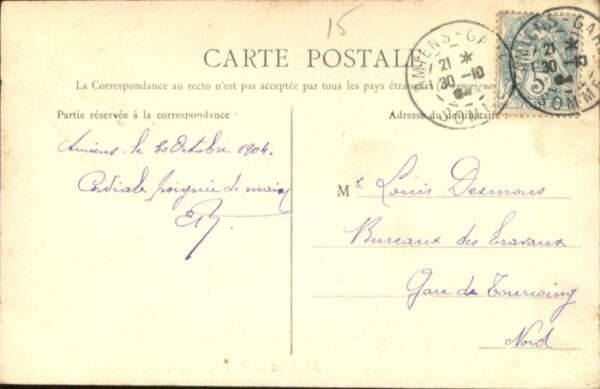 15
CARTE POSTALE
La Correspondance au recto n'est pas acceptée par tous les pays étrangers
Partie réservée à la correspondance
Adresse du destinataire
AMIENS-GARE
21 *
30 -10
SOMME
AMIENS-GARE
21 *
30 -10
SOMME
5
Amiens le 30 Octobre 1904.
Cordiale poignée de main
M. Louis Desmons
Bureaux des Travaux
Gare de Tourcoing
Nord